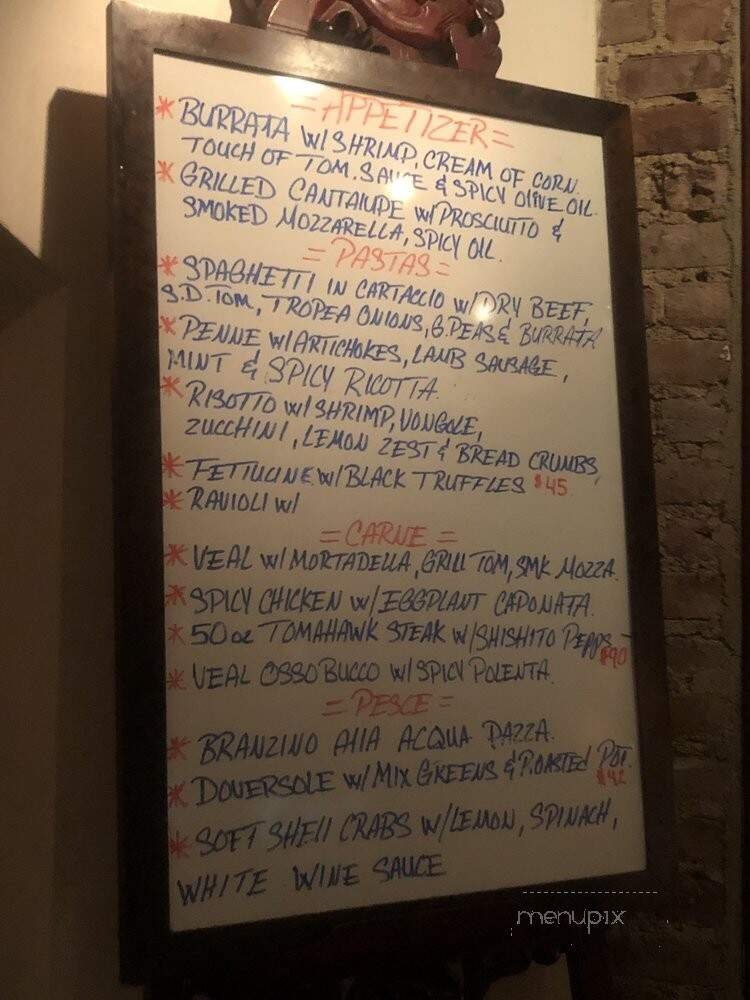 = APPETIZER =
* BURRATA W/ SHRIMP, CREAM OF CORN.
TOUCH OF TOM. SAUCE & SPICY OLIVE OIL.
* GRILLED CANTALUPE W/ PROSCIUTTO &
SMOKED MOZZARELLA, SPICY OIL.
= PASTAS =
* SPAGHETTI IN CARTACCIO W/ DRY BEEF,
S.D. TOM, TROPEA ONIONS, G. PEAS & BURRATA
* PENNE W/ ARTICHOKES, LAMB SAUSAGE,
MINT & SPICY RICOTTA.
* RISOTTO W/ SHRIMP, VONGOLE,
ZUCCHINI, LEMON ZEST & BREAD CRUMBS
* FETTUCINE W/ BLACK TRUFFLES $45
* RAVIOLI W/
= CARNE =
* VEAL W/ MORTADELLA, GRILL TOM, SMK MOZZA.
* SPICY CHICKEN W/ EGGPLANT CAPONATA.
* 50 oz TOMAHAWK STEAK W/ SHISHITO PEPPS - $90
* VEAL OSSOBUCCO W/ SPICY POLENTA.
= PESCE =
* BRANZINO AllA ACQUA PAZZA.
* DOVERSOLE W/ MIX GREENS & ROASTED POT. $42
* SOFT SHEll CRABS W/ LEMON, SPINACH,
WHITE WINE SAUCE
menupix